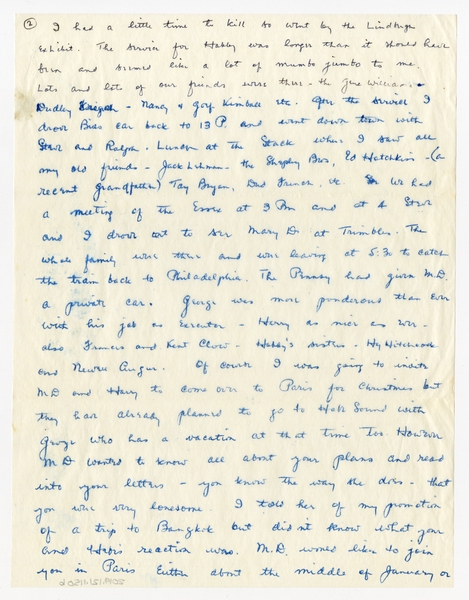 ② I had a little time to kill so went by the Lindbergh
Exhibit. The service for Hebby was longer than it should have
been and seemed like a lot of mumbo jumbo to me.
Lots and lots of our friends were there - the Gene Williams -
Dudley - Nancy & Gorf Kimball etc. After the service I
drove Bess car back to 13 P and went down town with
Stew and Ralph. Lunch at the Stack where I saw all
my old friends - Jack Lehman - the Shepley Bros, Ed Hotchkins - (a
recent grandfather) Tay Bryan, Dud French, etc. We had
a meeting of the Essex at 3 PM and at 4 Stew
and I drove out to see Mary D at Trimbles. The
whole family were there and were leaving at 5:30 to catch
the train back to Philadelphia. The Pennsy had given M.D.
a private car. George was more ponderous than ever
with his job as Executor - Harry as nice as ever -
also Francis and Kent Clow - Hebby's sisters - Hy Hitchcock
and Newell Augur. Of course I was going to invite
M.D and Harry to come over to Paris for Christmas but
they had already planned to go to Hobe Sound with
George who has a vacation at that time too. However
M.D wanted to know all about your plans and read
into your letters - you know the way she does - that
you were very lonesome. I told her of my promotion
of a trip to Bangkok but didn't know what your
and Hebi's reaction was. M.D. would like to join
you in Paris Either about the middle of January or